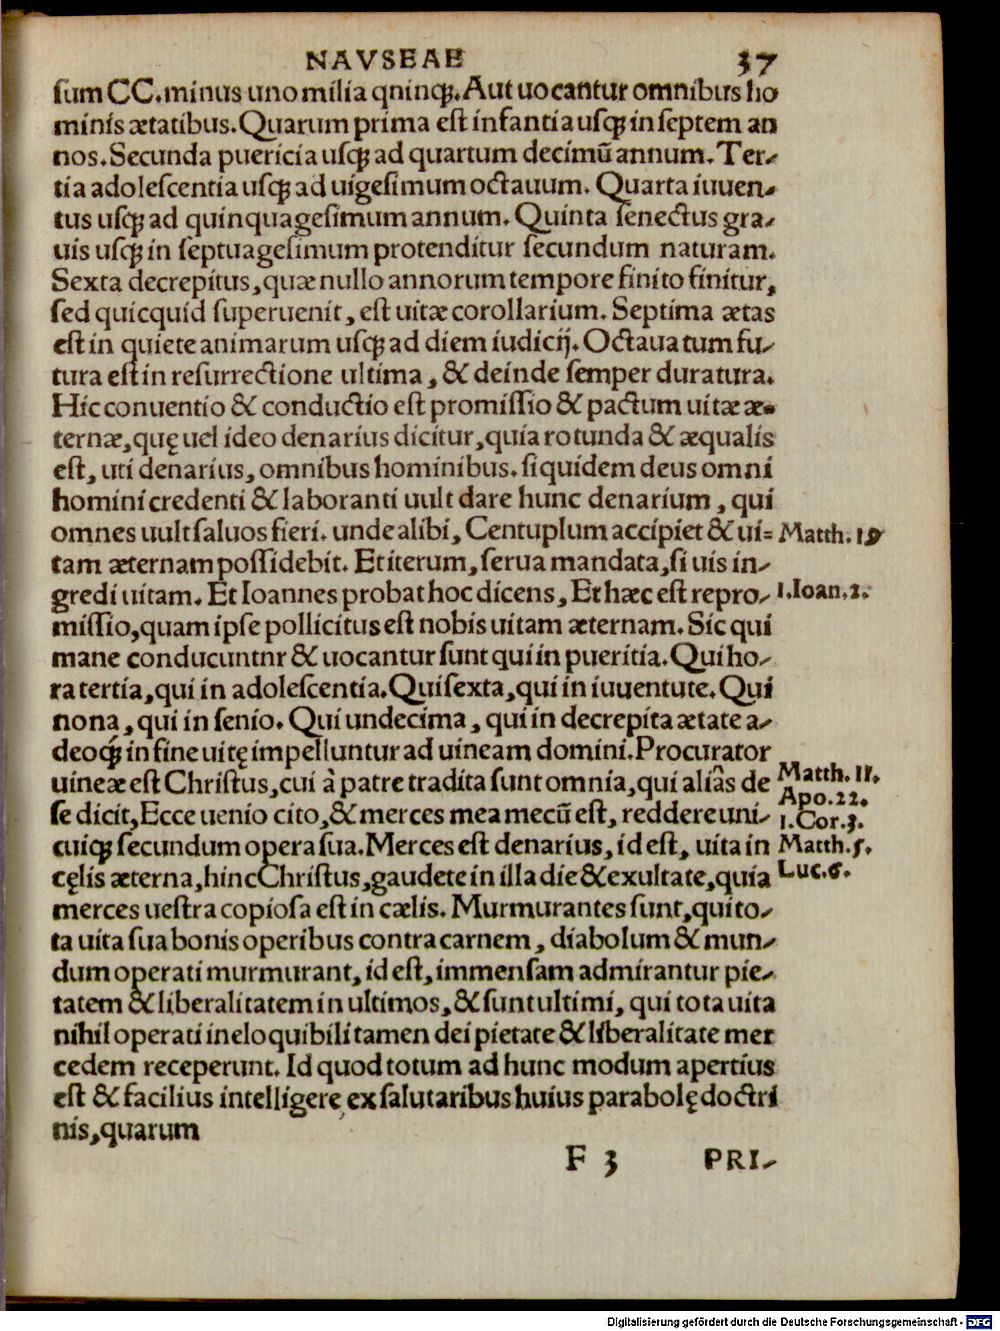 NAVSEAE 37
sum CC.minus uno milia qninqꝫ.Aut uocantur omnibus ho
minis ætatibus.Quarum prima est infantia usqꝫ in septem an
nos.Secunda puericia usqꝫ ad quartum decimū annum.Ter-
tia adolescentia usqꝫ ad uigesimum octauum. Quarta iuuen-
tus usqꝫ ad quinquagesimum annum. Quinta senectus gra-
uis usqꝫ in septuagesimum protenditur secundum naturam.
Sexta decrepitus,quæ nullo annorum tempore finito finitur,
sed quicquid superuenit, est uitæ corollarium. Septima ætas
est in quiete animarum usqꝫ ad diem iudicij. Octaua tum fu-
tura est in resurrectione ultima, & deinde semper duratura.
Hic conuentio & conductio est promissio & pactum uitæ æ-
ternæ,quę uel ideo denarius dicitur,quia rotunda & æqualis
est, uti denarius, omnibus hominibus. siquidem deus omni
homini credenti & laboranti uult dare hunc denarium, qui
omnes uult saluos fieri. unde alibi, Centuplum accipiet & ui= Matth. 19
tam æternam possidebit. Et iterum, serua mandata, si uis in-
gredi uitam. Et Ioannes probat hoc dicens, Et hæc est repro- 1.Ioan.2.
missio,quam ipse pollicitus est nobis uitam æternam. Sic qui
mane conducuntnr & uocantur sunt qui in pueritia. Qui ho-
ra tertia, qui in adolescentia. Qui sexta, qui in iuuentute. Qui
nona, qui in senio. Qui undecima, qui in decrepita ætate a-
deoqꝫ́ in fine uitę impelluntur ad uineam domini. Procurator
uineæ est Christus, cui à patre tradita sunt omnia, qui aliâs de Matth. 11.
Apo.22.
se dicit, Ecce uenio cito, & merces mea mecū est, reddere uni- 1.Cor.3.
cuiqꝫ secundum opera sua. Merces est denarius, id est, uita in Matth.5.
cęlis æterna, hinc Christus, gaudete in illa die & exultate, quia Luc.6.
merces uestra copiosa est in cælis. Murmurantes sunt, qui to-
ta uita sua bonis operibus contra carnem, diabolum & mun-
dum operati murmurant, id est, immensam admirantur pie-
tatem & liberalitatem in ultimos, & sunt ultimi, qui tota uita
nihil operati ineloquibili tamen dei pietate & liberalitate mer
cedem receperunt. Id quod totum ad hunc modum apertius
est & facilius intelligere ex salutaribus huius parabolę doctri
nis, quarum
F 3 PRI-
Digitalisierung gefördert durch die Deutsche Forschungsgemeinschaft - DFG